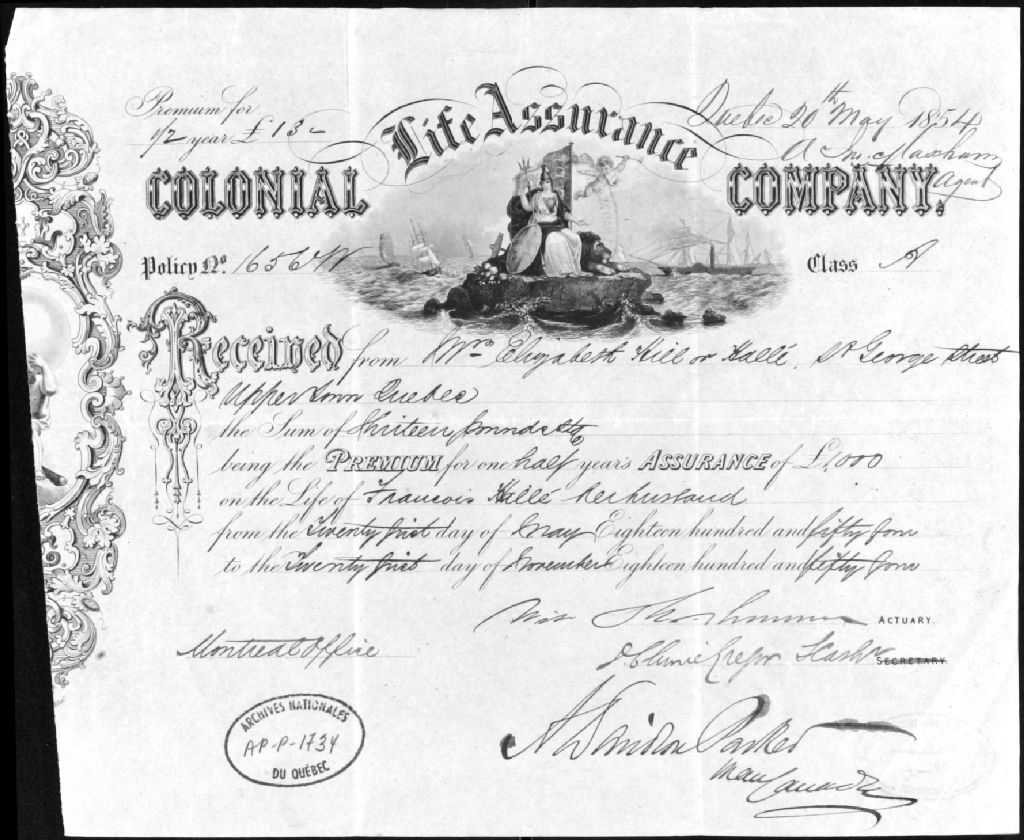 Premium for
1/2 year £13 -
Quebec 20th May 1854
Agent
Life Assurance
COLONIAL COMPANY.
Policy No. 1656
Class A
Received from Mrs Elizabeth Hill or Hallé, St George Street
Upper Town Quebec
the Sum of Thirteen pounds
being the PREMIUM for one half year's ASSURANCE of £1,000
on the Life of Francois Hallé her husband
from the Twenty first day of May Eighteen hundred and fifty four
to the Twenty first day of November Eighteen hundred and fifty four
Wm Thos Thomson ACTUARY.
Montreal Office
SECRETARY
A Davidson Parker
Man Canada
ARCHIVES NATIONALES
AP-P-1734
DU QUÉBEC